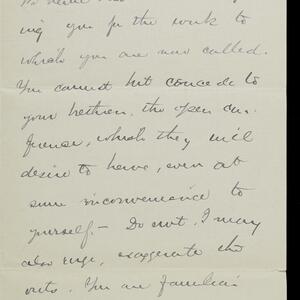 ing you for the work to
which you are now called.
You cannot but concede to
your brethren, the open con-
ference, which they will
desire to have, even at
some inconvenience to
yourself. — Do not, I may
also urge, exaggerate the
evils. You are familiar